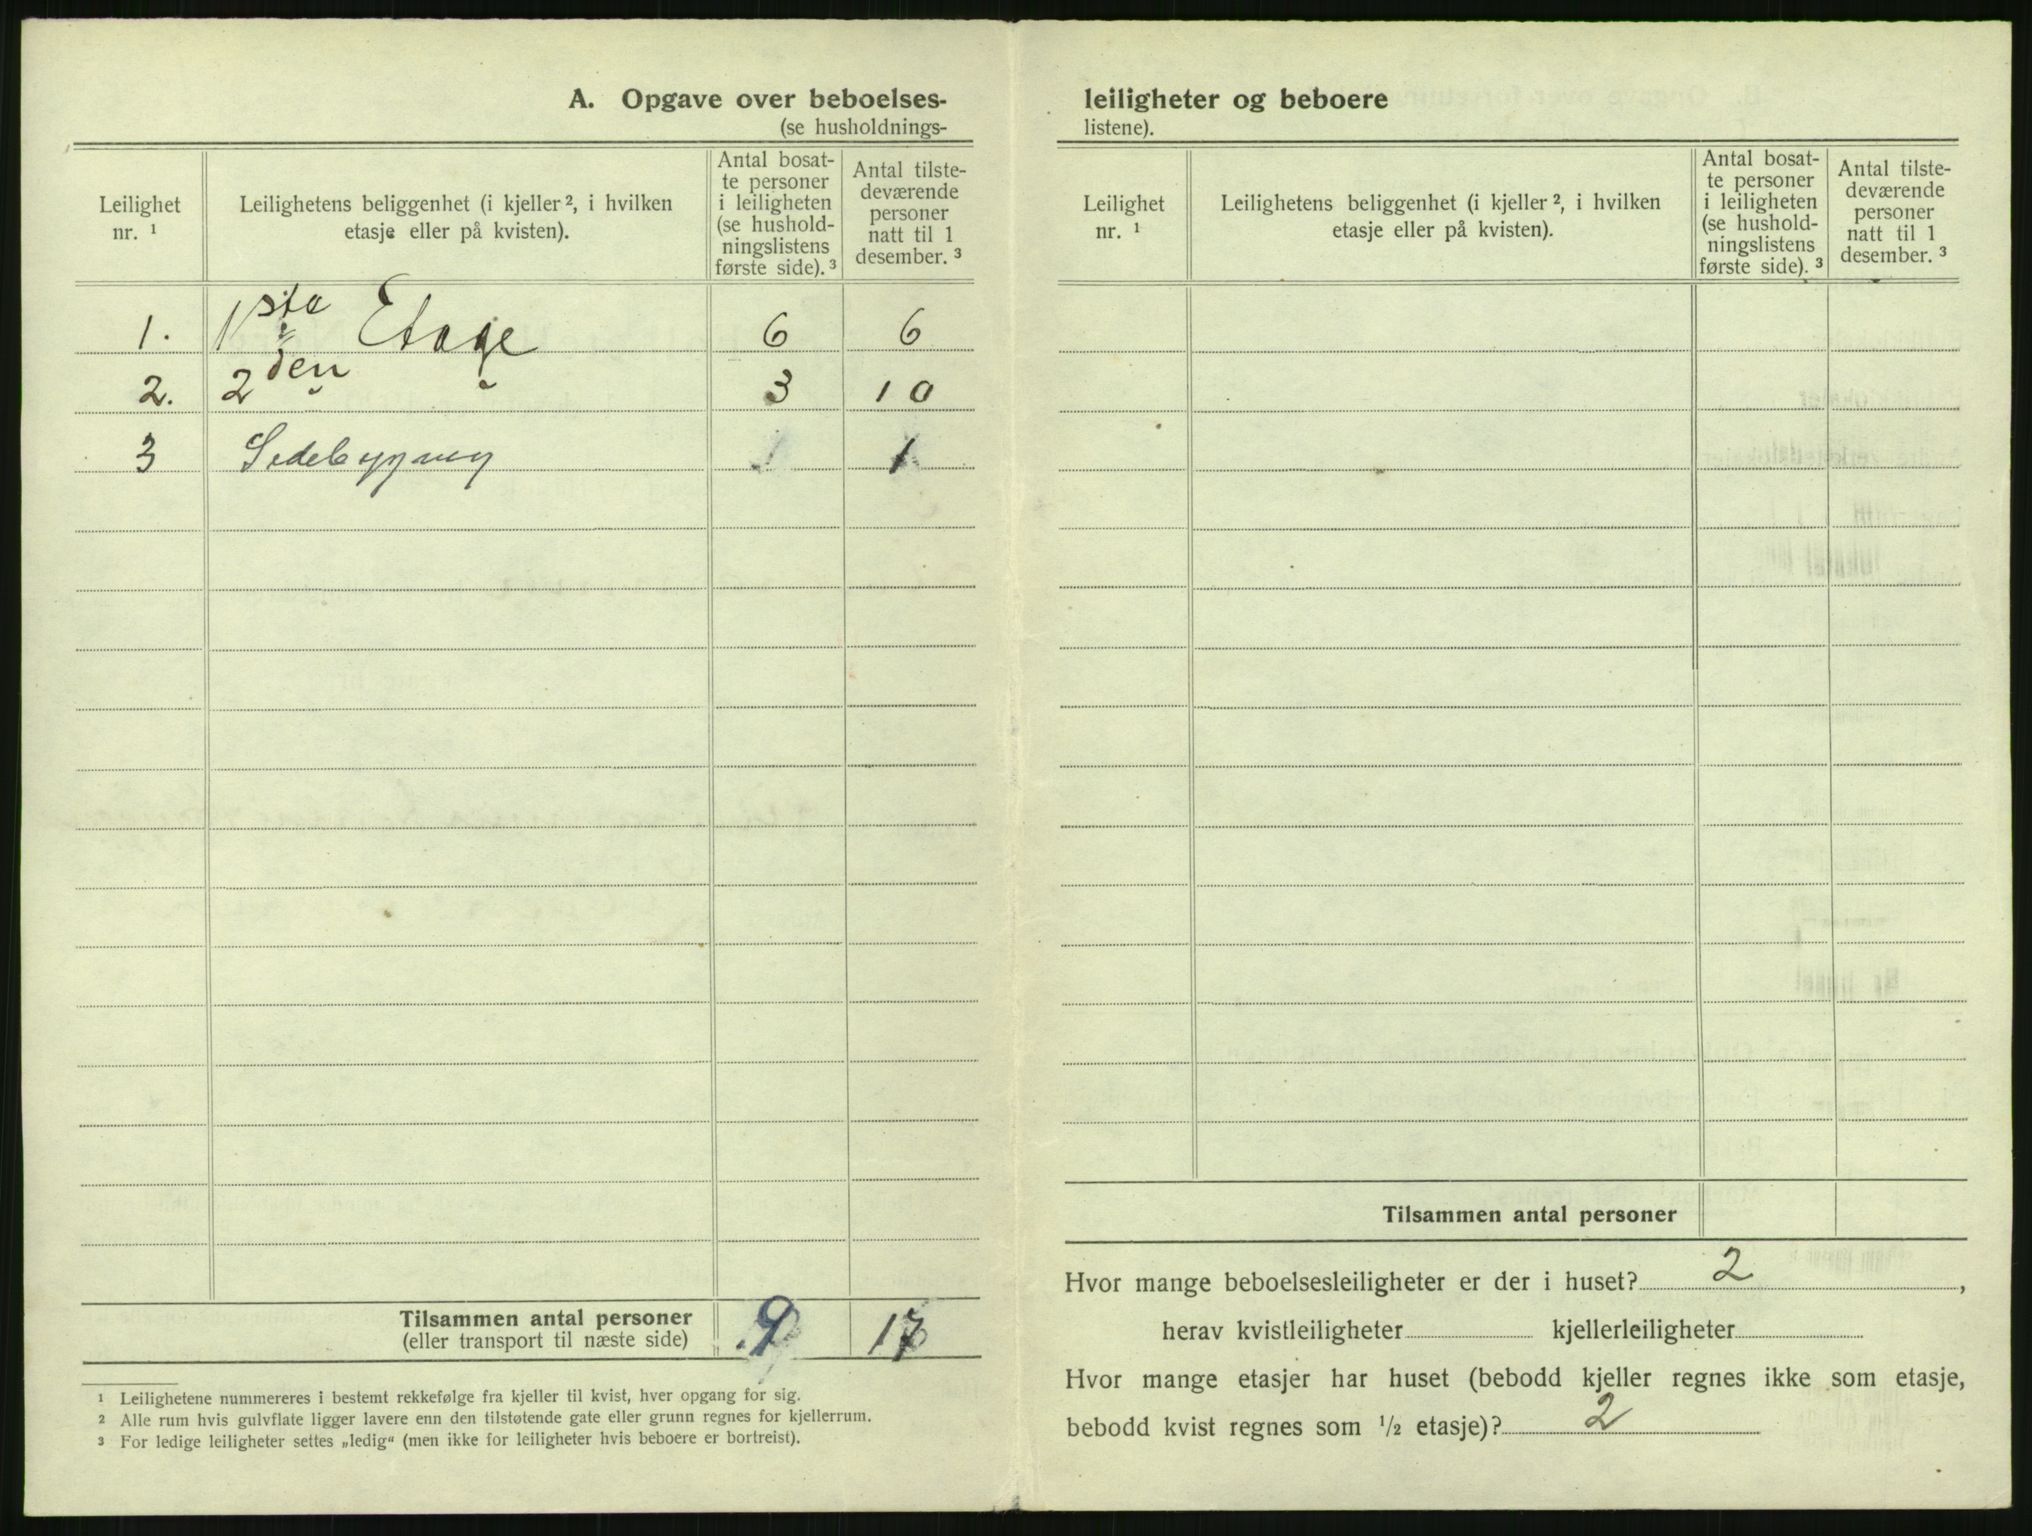 A. Opgave over beboelses-
(se husholdnings-
Leilighet
nr. ¹
Leilighetens beliggenhet (i kjeller ², i hvilken
etasje eller på kvisten).
Antal bosat-
te personer
i leiligheten
(se hushold-
ningslistens
første side). ³
Antal tilste-
deværende
personer
natt til 1
desember. ³
1. 1ste Etage 6 6
2. 2den " " 3 10
3 Sidebygning 1 1
Tilsammen antal personer
(eller transport til næste side) 9 17
¹ Leilighetene nummereres i bestemt rekkefølge fra kjeller til kvist, hver opgang for sig.
² Alle rum hvis gulvflate ligger lavere enn den tilstøtende gate eller grunn regnes for kjellerrum.
³ For ledige leiligheter settes „ledig“ (men ikke for leiligheter hvis beboere er bortreist).
leiligheter og beboere
listene).
Leilighet
nr. ¹
Leilighetens beliggenhet (i kjeller ², i hvilken
etasje eller på kvisten).
Antal bosat-
te personer
i leiligheten
(se hushold-
ningslistens
første side). ³
Antal tilste-
deværende
personer
natt til 1
desember. ³
Tilsammen antal personer
Hvor mange beboelsesleiligheter er der i huset? 2 ,
herav kvistleiligheter kjellerleiligheter
Hvor mange etasjer har huset (bebodd kjeller regnes ikke som etasje,
bebodd kvist regnes som ½ etasje)? 2